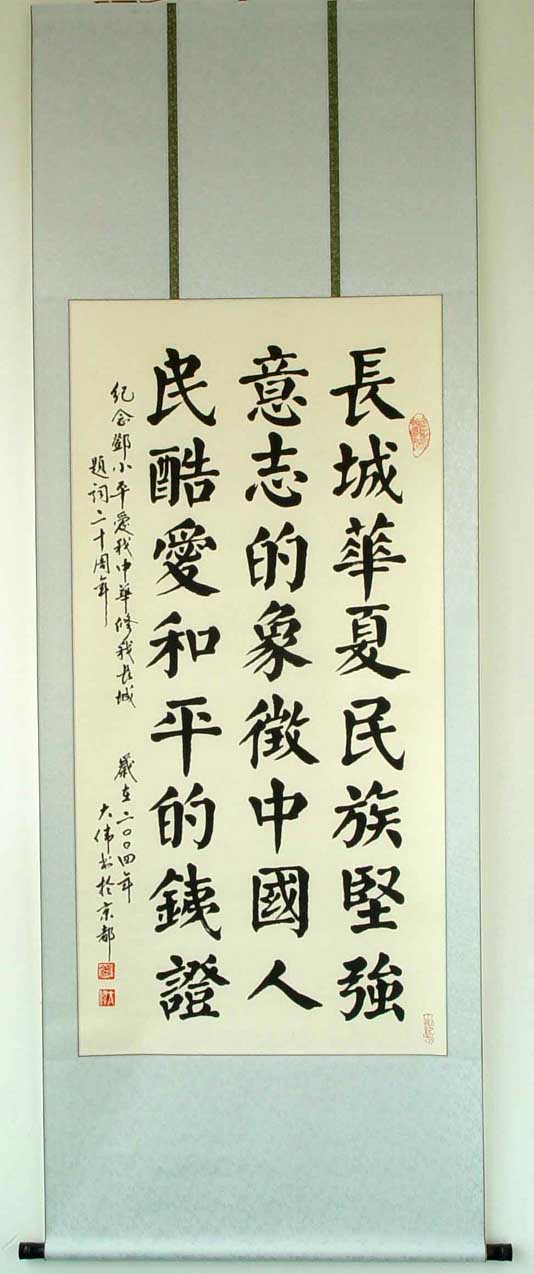 長城華夏民族堅強
意志的象徵中國人
民酷愛和平的銕證
紀念鄧小平愛我中華修我長城
題詞二十周年
嵗在二〇〇四年
大偉书於京都